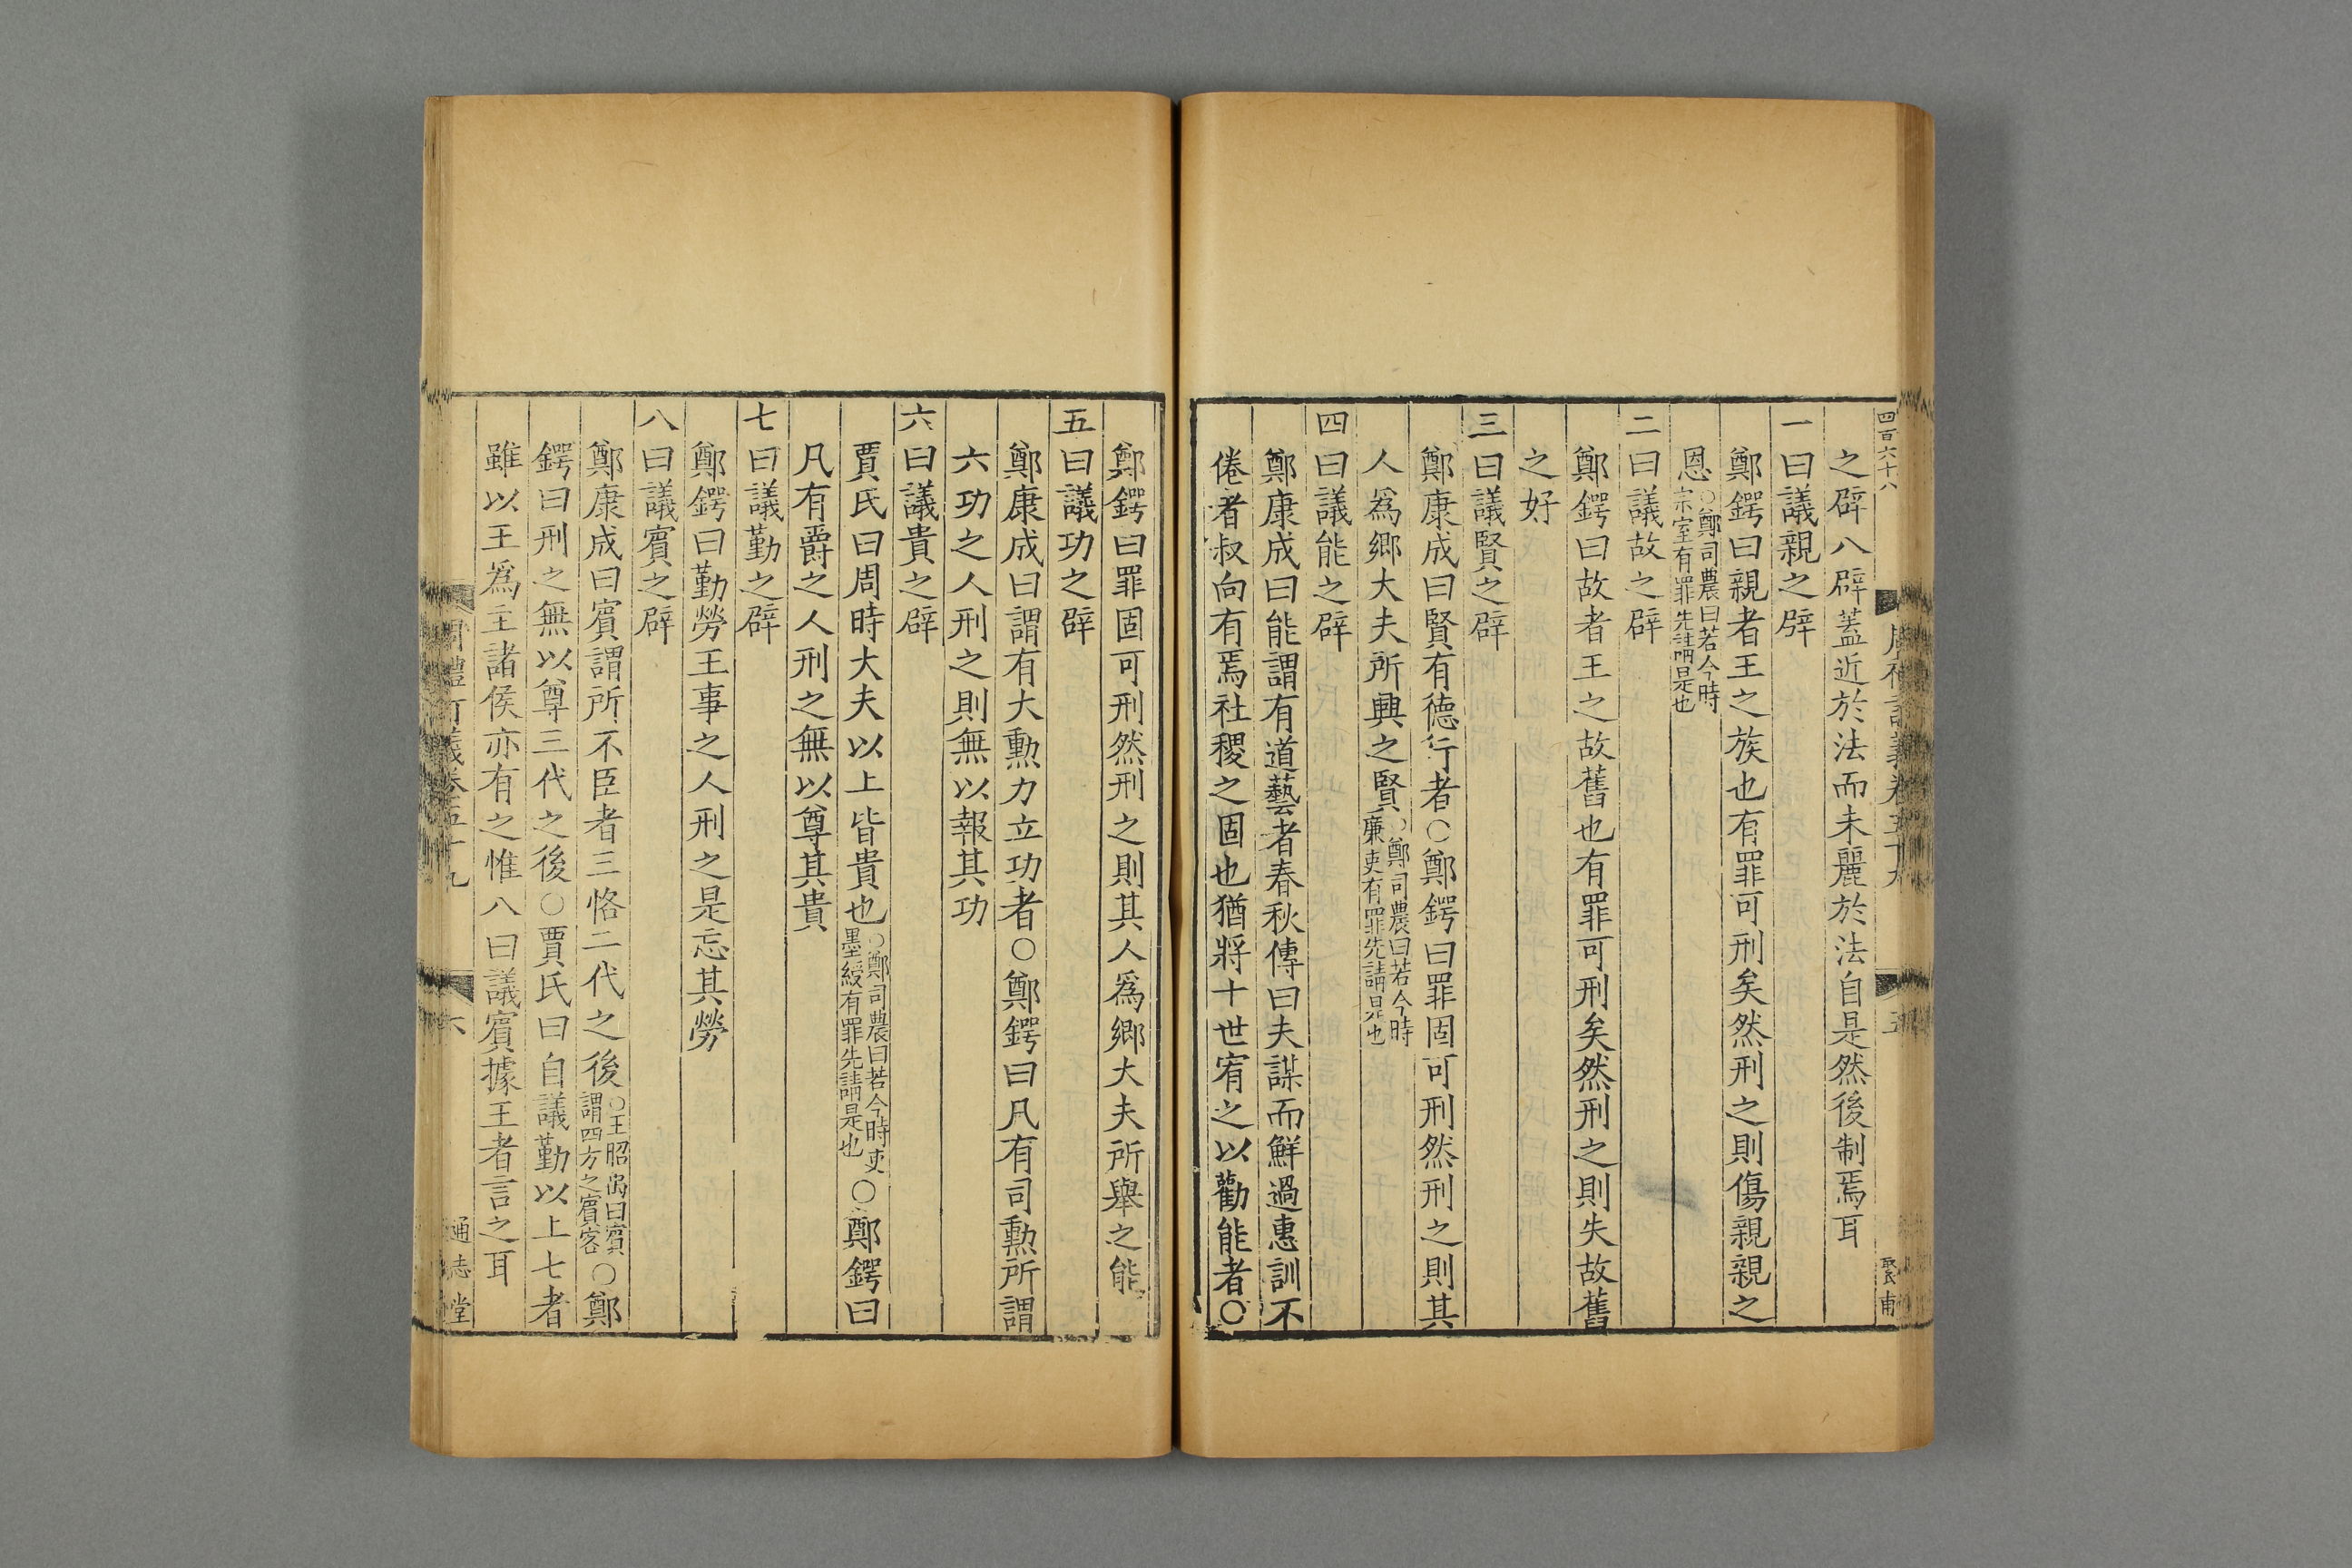 四百六十八
之辟八辟蓋近於法而未麗於法自是然後制焉耳
一曰議親之辟
鄭鍔曰親者王之族也有罪可刑矣然刑之則傷親親之
恩○鄭司農曰若今時宗室有罪先請是也
二曰議故之辟
鄭鍔曰故者王之故舊也有罪可刑矣然刑之則失故舊
之好
三曰議賢之辟
鄭康成曰賢有德行者○鄭鍔曰罪固可刑然刑之則其
人為鄉大夫所興之賢○鄭司農曰若今時廉吏有罪先請是也
四曰議能之辟
鄭康成曰能謂有道藝者春秋傳曰夫謀而鮮過惠訓不
倦者叔向有焉社稷之固也猶將十世宥之以勸能者○
鄭鍔曰罪固可刑然刑之則其人為鄉大夫所舉之能
五曰議功之辟
鄭康成曰謂有大勲力立功者○鄭鍔曰凡有司勲所謂
六功之人刑之則無以報其功
六曰議貴之辟
賈氏曰周時大夫以上皆貴也○鄭司農曰若今時吏墨綬有罪先請是也○鄭鍔曰
凡有爵之人刑之無以尊其貴
七曰議勤之辟
鄭鍔曰勤勞王事之人刑之是忘其勞
八曰議賓之辟
鄭康成曰賓謂所不臣者三恪二代之後○王昭禹曰賓謂四方之賓客○鄭
鍔曰刑之無以尊三代之後○賈氏曰自議勤以上七者
雖以王為主諸侯亦有之惟八曰議賓據王者言之耳
周禮訂義卷五十九 六 通志堂